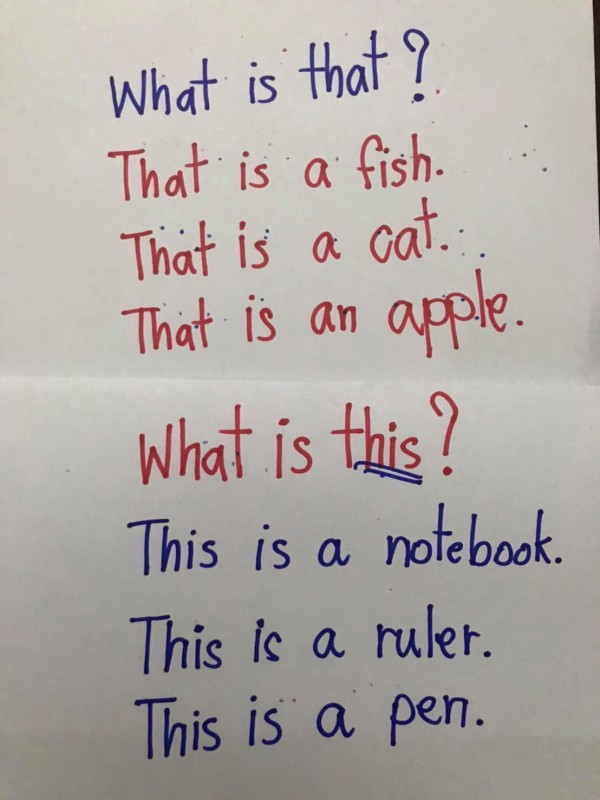 What is that?
That is a fish.
That is a cat.
That is an apple.
What is this?
This is a notebook.
This is a ruler.
This is a pen.